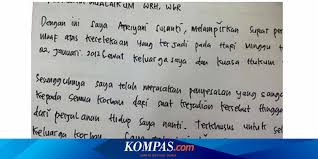 WBH, WBR
Dengan ini Saya Apriyani Susanti, melampirkan Surat per
maaf atas kecelakaan yang terjadi pada hari Minggu t
22 Januari. 2012 Lewat keluarga saya dan kuasa Hukum
Sesungguhnya saya telah merasakan penyesalan yang sanga
kepada Semua korban dari saat kejadian tersebut hingga
dari perjalanan Hidup Saya nanti. Terkhusus untuk se
keluarga korban.
KOMPAS.com